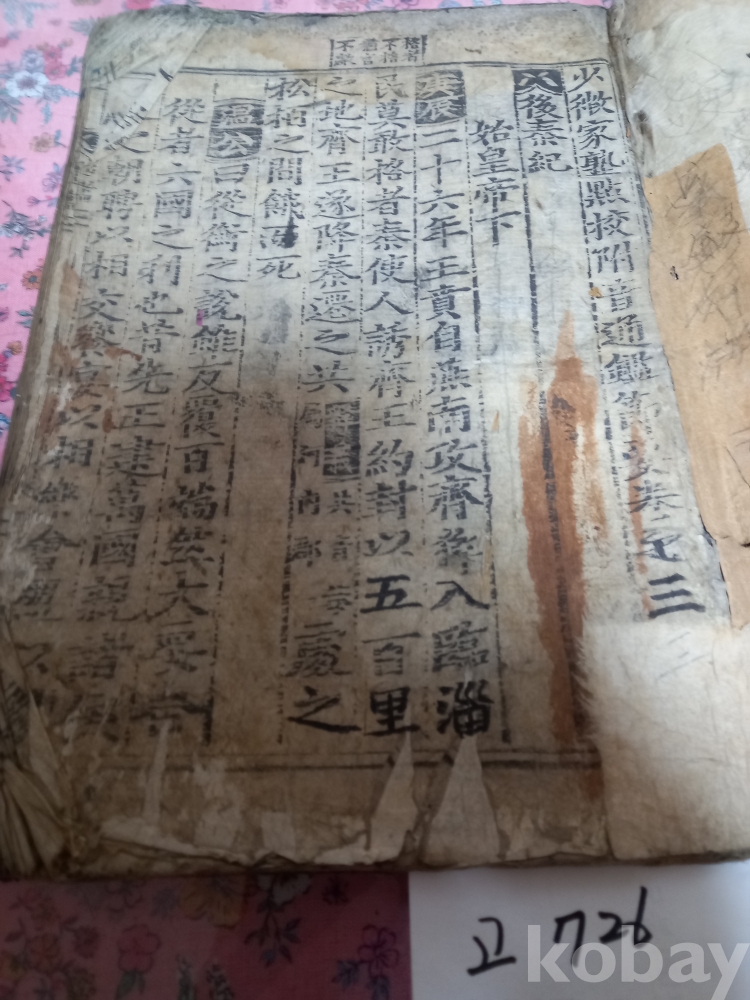 少微家塾點校附音通鑑節要卷之三
後秦紀
始皇帝下
庚辰二十六年王賁自燕南攻齊猝入臨淄
民莫敢格者秦使人誘齊王約封以五百里
之地齊王遂降秦遷之共處之
松栢之間餓而死
溫公曰從衡之說雖反覆百端然大要
從者六國之利也昔先王建萬國親諸侯
朝聘以相交饗宴以相樂會盟以
고 726
kobay